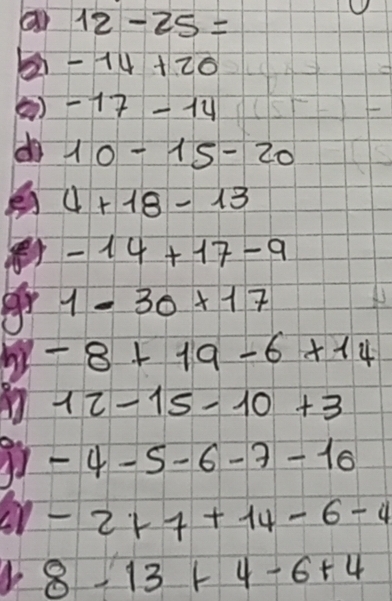 a) 12 - 25 =
b) - 14 + 20
c) - 17 - 14
d) 10 - 15 - 20
e) 4 + 18 - 13
f) - 14 + 17 - 9
g) 1 - 30 + 17
h) - 8 + 19 - 6 + 14
i) 12 - 15 - 10 + 3
j) - 4 - 5 - 6 - 7 - 10
k) - 2 + 7 + 14 - 6 - 4
l) 8 - 13 + 4 - 6 + 4